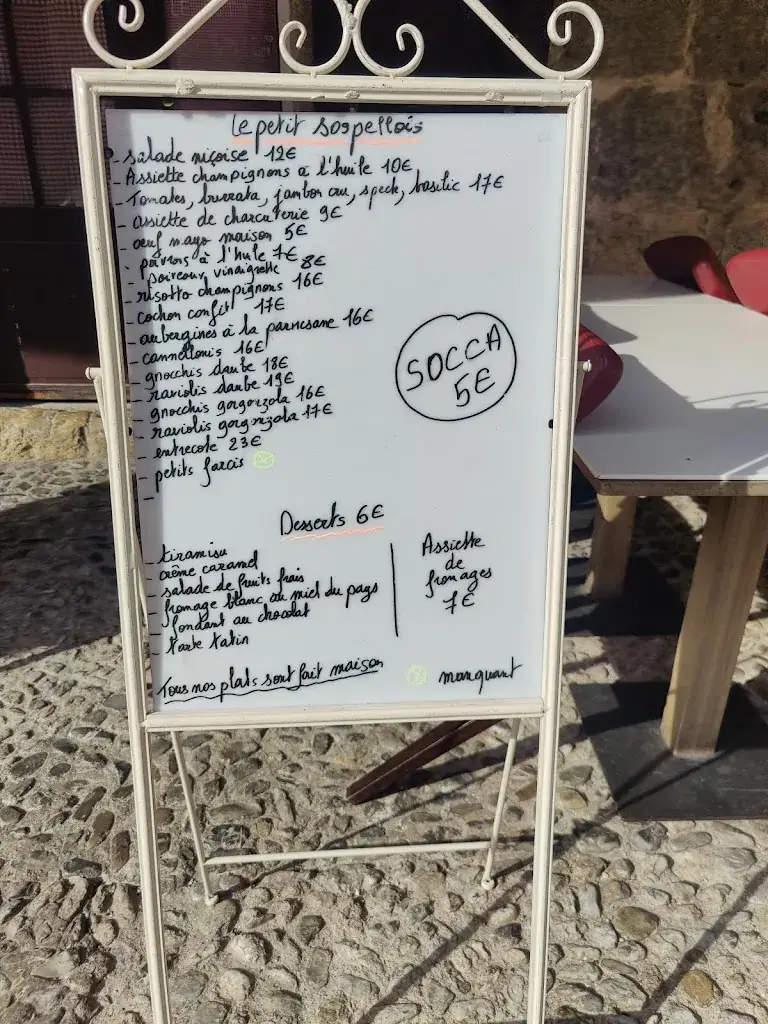 le petit sospellois
- salade niçoise 12€
- Assiette champignons à l'huile 10€
- Tomates, burrata, jambon cru, speck, basilic 17€
- assiette de charcuterie 9€
- oeuf mayo maison 5€
- poivrons à l'huile 7€
- poireaux vinaigrette 8€
- risotto champignons 16€
- cochon confit 17€
- aubergines à la parmesane 16€
- cannellonis 16€
- gnocchis daube 18€
- raviolis daube 19€
- gnocchis gorgonzola 16€
- raviolis gorgonzola 17€
- entrecote 23€
- petits farcis
-
SOCCA
5€
Desserts 6€
- tiramisu
- crème caramel
- salade de fruits frais
- fromage blanc au miel du pays
- fondant au chocolat
- tarte tatin
Assiette
de
fromages
7€
Tous nos plats sont fait maison
manquant